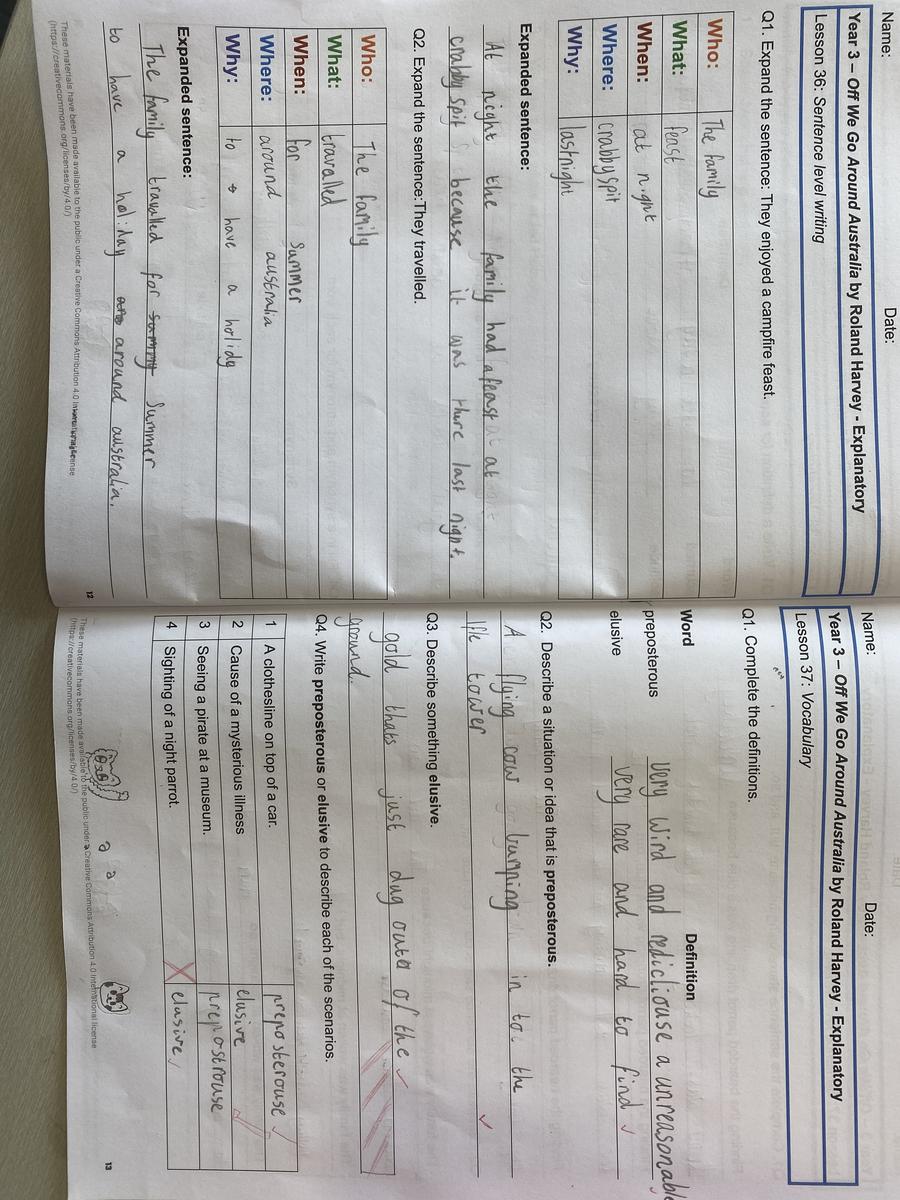 Name:
Date:
Year 3 – Off We Go Around Australia by Roland Harvey - Explanatory
Lesson 36: Sentence level writing
Q1. Expand the sentence: They enjoyed a campfire feast.
Who: The family
What: feast
When: at night
Where: crabby spit
Why: last night
Expanded sentence:
At night the family had a feast at
crabby spit because it was there last night.
Q2. Expand the sentence:They travelled.
Who: The family
What: travalled
When: for Summer
Where: around australia
Why: to have a holidy
Expanded sentence:
The family travalled for summy Summer
to have a holiday aro around australia.
These materials have been made available to the public under a Creative Commons Attribution 4.0 International license
(https://creativecommons.org/licenses/by/4.0/)
12
Name:
Date:
Year 3 – Off We Go Around Australia by Roland Harvey - Explanatory
Lesson 37: Vocabulary
Q1. Complete the definitions.
Word Definition
preposterous very wird and rediclouse a unreasonable
elusive very rare and hard to find
Q2. Describe a situation or idea that is preposterous.
A flying cow bumping in to the
ifle tower
Q3. Describe something elusive.
gold thats just dug outer of the
ground.
Q4. Write preposterous or elusive to describe each of the scenarios.
1 A clothesline on top of a car. preposterouse
2 Cause of a mysterious illness elusive
3 Seeing a pirate at a museum. prepostrouse
4 Sighting of a night parrot. elusive
a a
These materials have been made available to the public under a Creative Commons Attribution 4.0 International license
(https://creativecommons.org/licenses/by/4.0/)
13